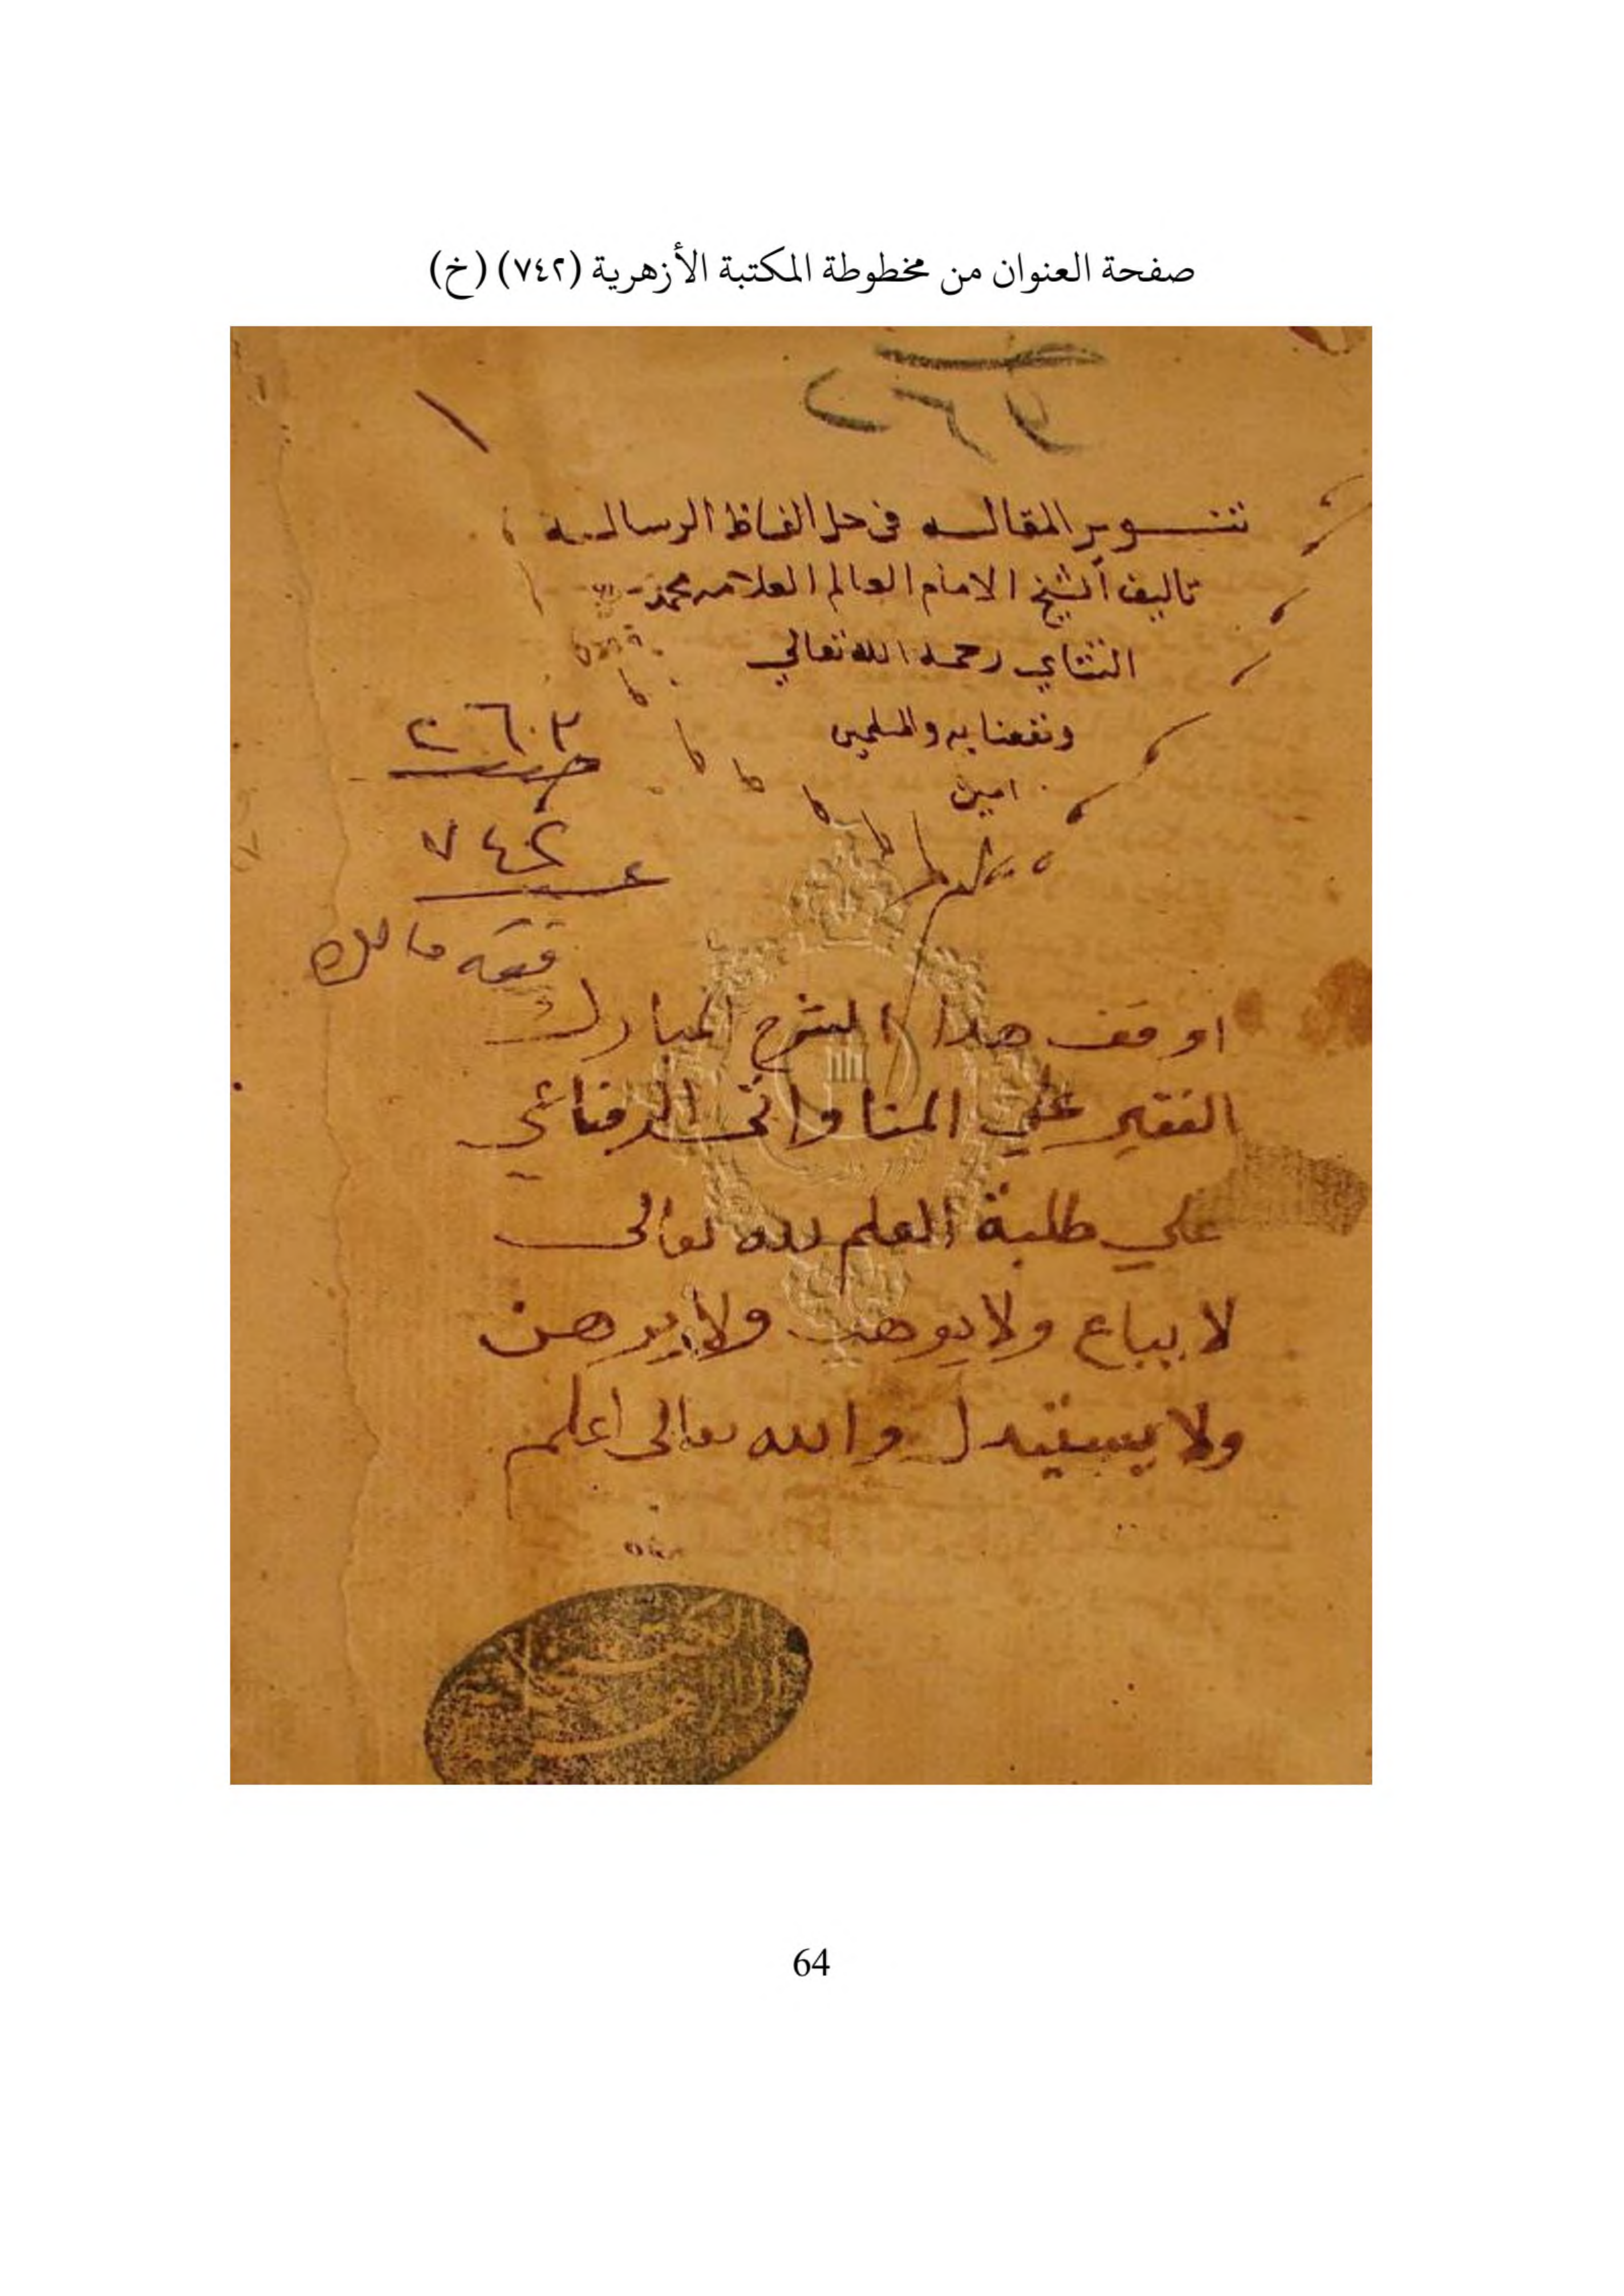 صفحة العنوان من مخطوطة المكتبة الأزهرية (٧٤٢) (خ)
تنوير المقاله في حل الفاظ الرساله
تاليف الشيخ الامام العالم العلامه محمد
التتاي رحمه الله تعالي
ونفعنا به والمسلمين
امين
٢٦٠٣
٧٤٢
فقه مالك
اوقف هدا الشرح المبارك
الفقير علي المناواتى
علي طلبة العلم لله تعالى
لا يباع ولا يوهب ولا يرهن
ولا يستبدل والله تعالى اعلم
64